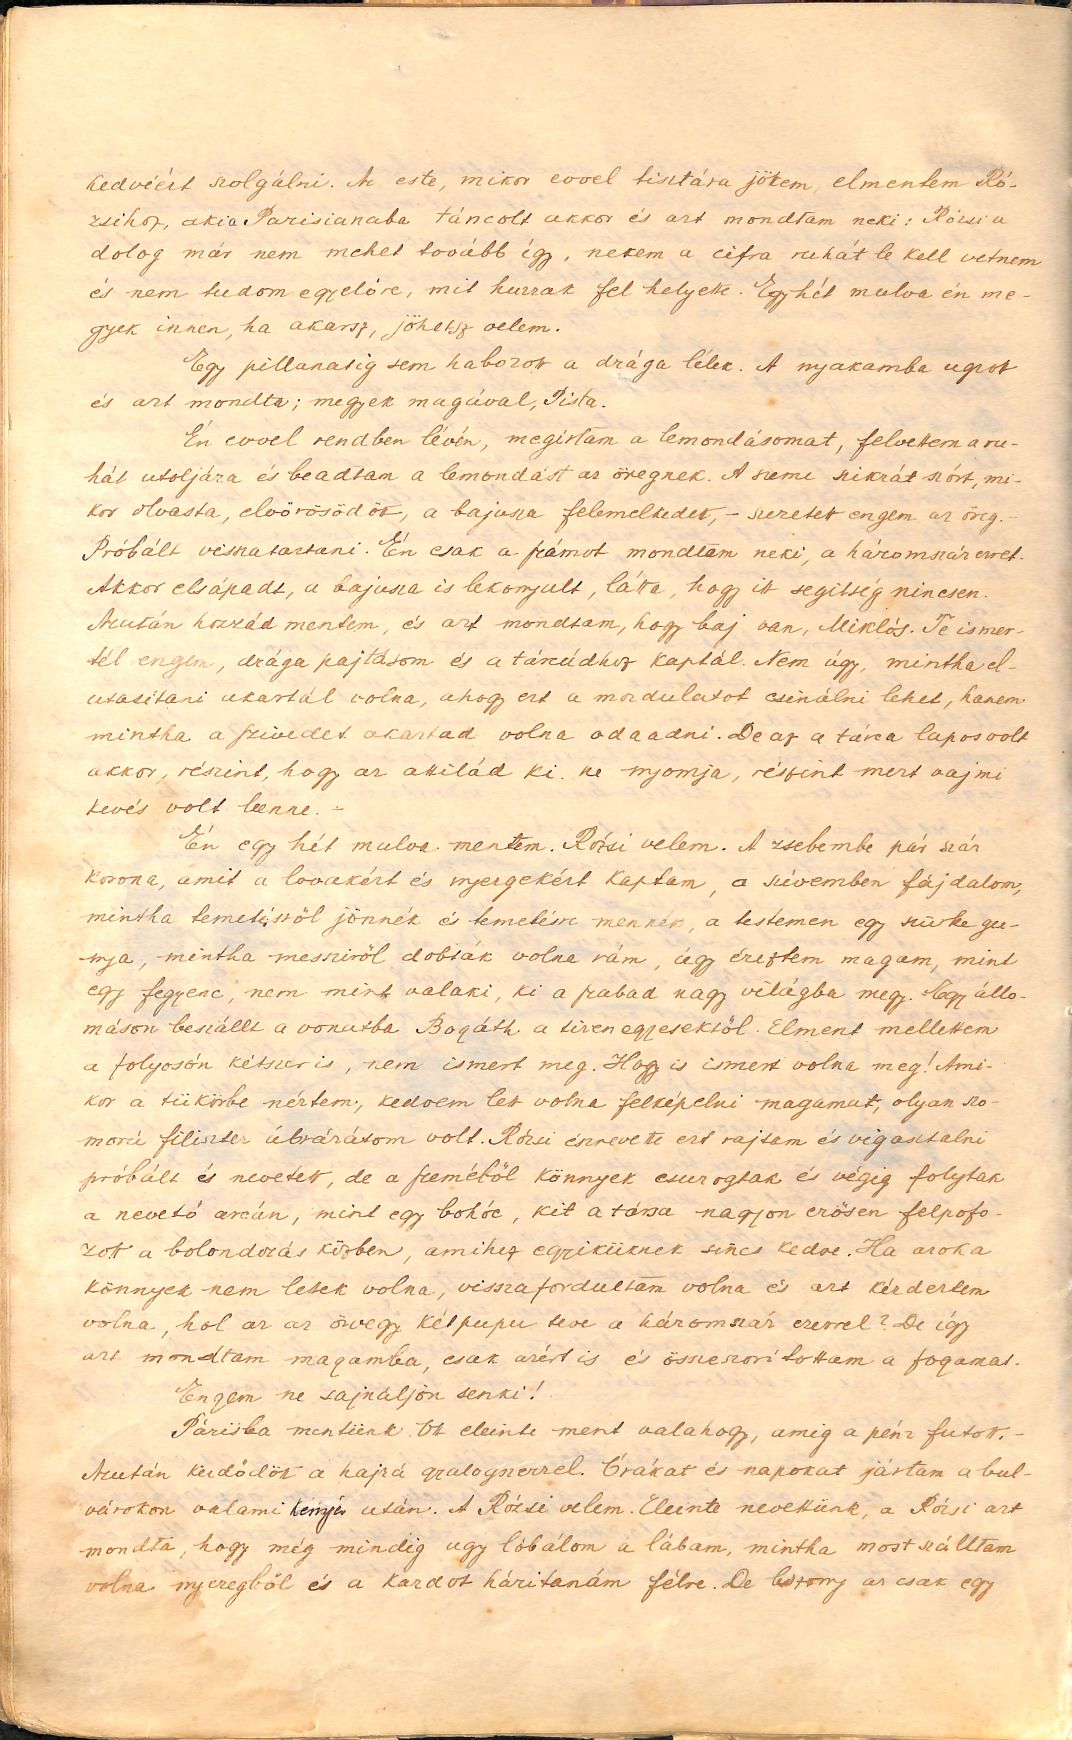 kedvéért szolgálni. Az este, mikor evvel tisztára jötem, elmentem Ró-
zsihoz, aki a Parisianaba táncolt akkor és azt mondtam neki: Rózsi a
dolog már nem mehet tovább így, nekem a cifra ruhát le kell vetnem
és nem tudom egyelőre, mit huzzak fel helyette. Egy hét mulva én me-
gyek innen, ha akarsz, jöhetsz velem.
Egy pillanatig sem habozott a drága lélek. A nyakamba ugrot
és azt mondta; megyek magával, Pista.
Én evvel rendben lévén, megírtam a lemondásomat, felvettem a ru-
hát utoljára és beadtam a lemondást az öregnek. A szeme szikrát szórt, mi-
kor olvasta, elvörösödöt, a bajusza felemelkedet, - szeretett engem az öreg. -
Próbált visszatartani. Én csak a számot mondtam neki, a háromszázezret.
Akkor elsápadt, a bajusza is lekonyult, látta, hogy itt segitség nincsen.
Azután hozzád mentem, és azt mondtam, hogy baj van, Miklós. Te ismer-
tél engem, drága pajtásom és a tárcádhoz kaptál. Nem úgy, mintha el-
utasitani akartál volna, ahogy ezt a mozdulatot csinálni lehet, hanem
mintha a szivedet akartad volna odaadni. De az a tárca lapos volt
akkor, részint, hogy az attilád ki ne nyomja, részint mert vajmi
kevés volt benne. -
Én egy hét mulva mentem. Rózsi velem. A zsebembe pár száz
korona, amit a lovakért és nyergekért kaptam, a szívemben fájdalom,
mintha temetésről jönnék és temetésre mennék, a testemen egy szürke gu-
nya, mintha messziről dobták volna rám, úgy éreztem magam, mint
egy fegyenc, nem mint valaki, ki a szabad nagy világba megy. Egy állo-
máson beszállt a vonatba Bogáth a tizenegyesektől. Elment mellettem
a folyosón kétszer is, nem ismert meg. Hogy is ismert volna meg! Ami-
kor a tükörbe néztem, kedvem lett volna felképelni magamat, olyan szo-
morú filiszter ábrázatom volt. Rózsi észrevette ezt rajtam és vigasztalni
próbált és nevetett, de a szeméből könnyek csurogtak és végig folytak
a nevető arcán, mint egy bohóc, kit a társa nagyon erősen felpofo-
zott a bolondozás közben, amihez egyiküknek sincs kedve. Ha azok a
könnyek nem letek volna, visszafordultam volna és azt kérdeztem
volna, hol az az özvegy kétpupu teve a háromszáz ezerrel? De így
azt mondtam magamba, csak azért is és összeszorítottam a fogamat.
Engem ne sajnáljon senki!
Párisba mentünk. Ott eleinte ment valahogy, amig a pénz futott. -
Azután kezdődött a hajzá gyalogszerrel. Órákat és napokat jártam a bul-
várokon valami kenyér után. A Rózsi velem. Eleinte nevettünk, a Rózsi azt
mondta, hogy még mindig ugy lóbálom a lábam, mintha most szálltam
volna nyeregből és a kardot háritanám félre. De bizony az csak egy